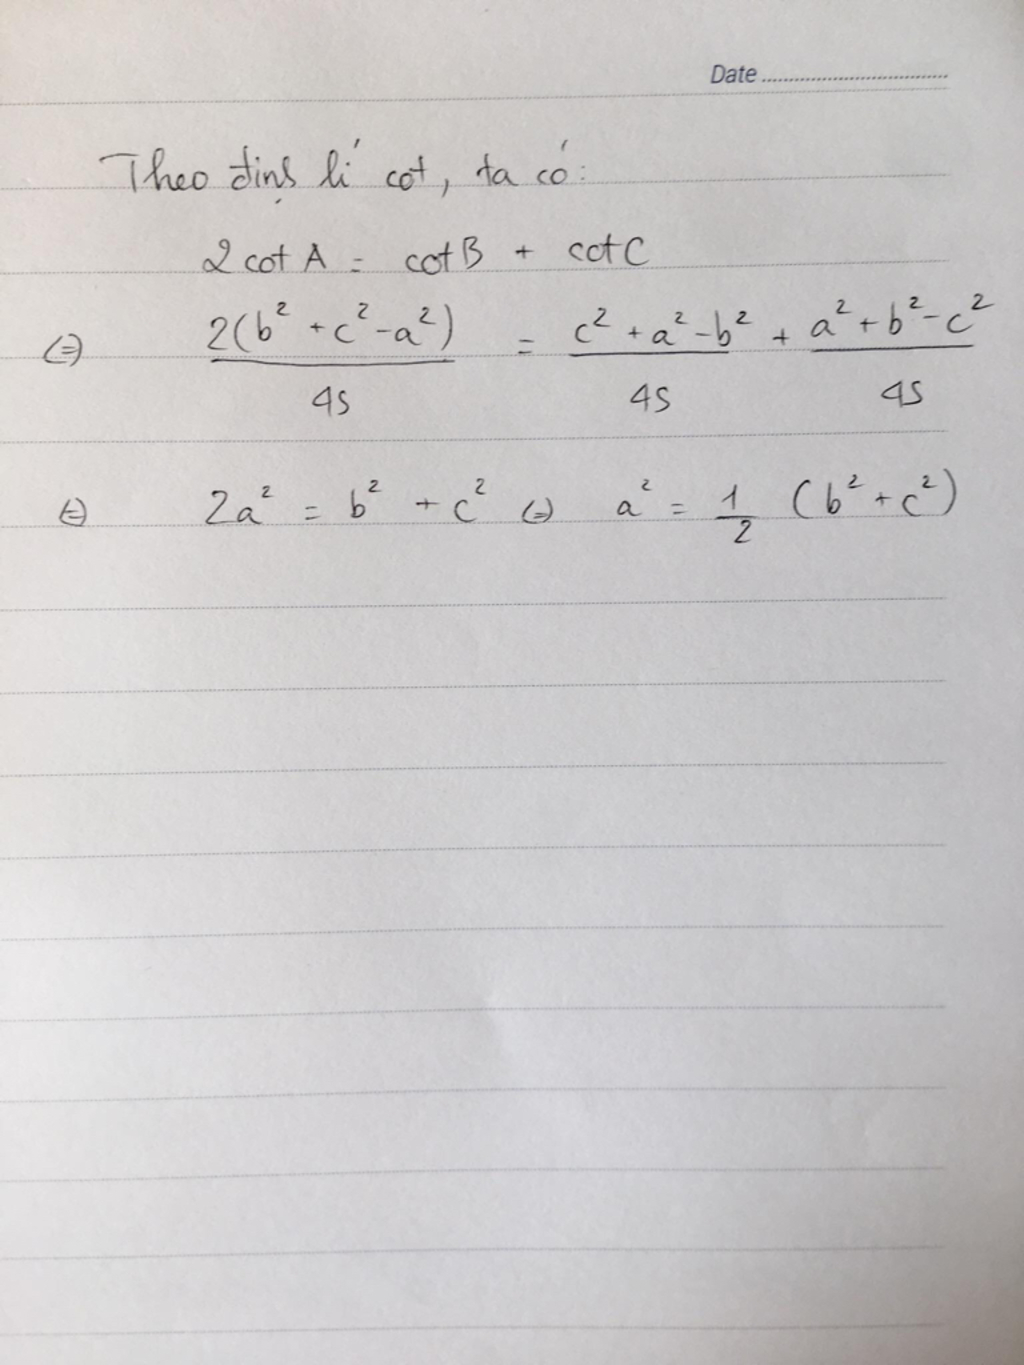 Date
Theo định lí cot, ta có:
2 cot A = cot B + cot C
⇔ 2(b² + c² - a²) / 4S = c² + a² - b² / 4S + a² + b² - c² / 4S
⇔ 2a² = b² + c² ⇔ a² = 1/2 (b² + c²)